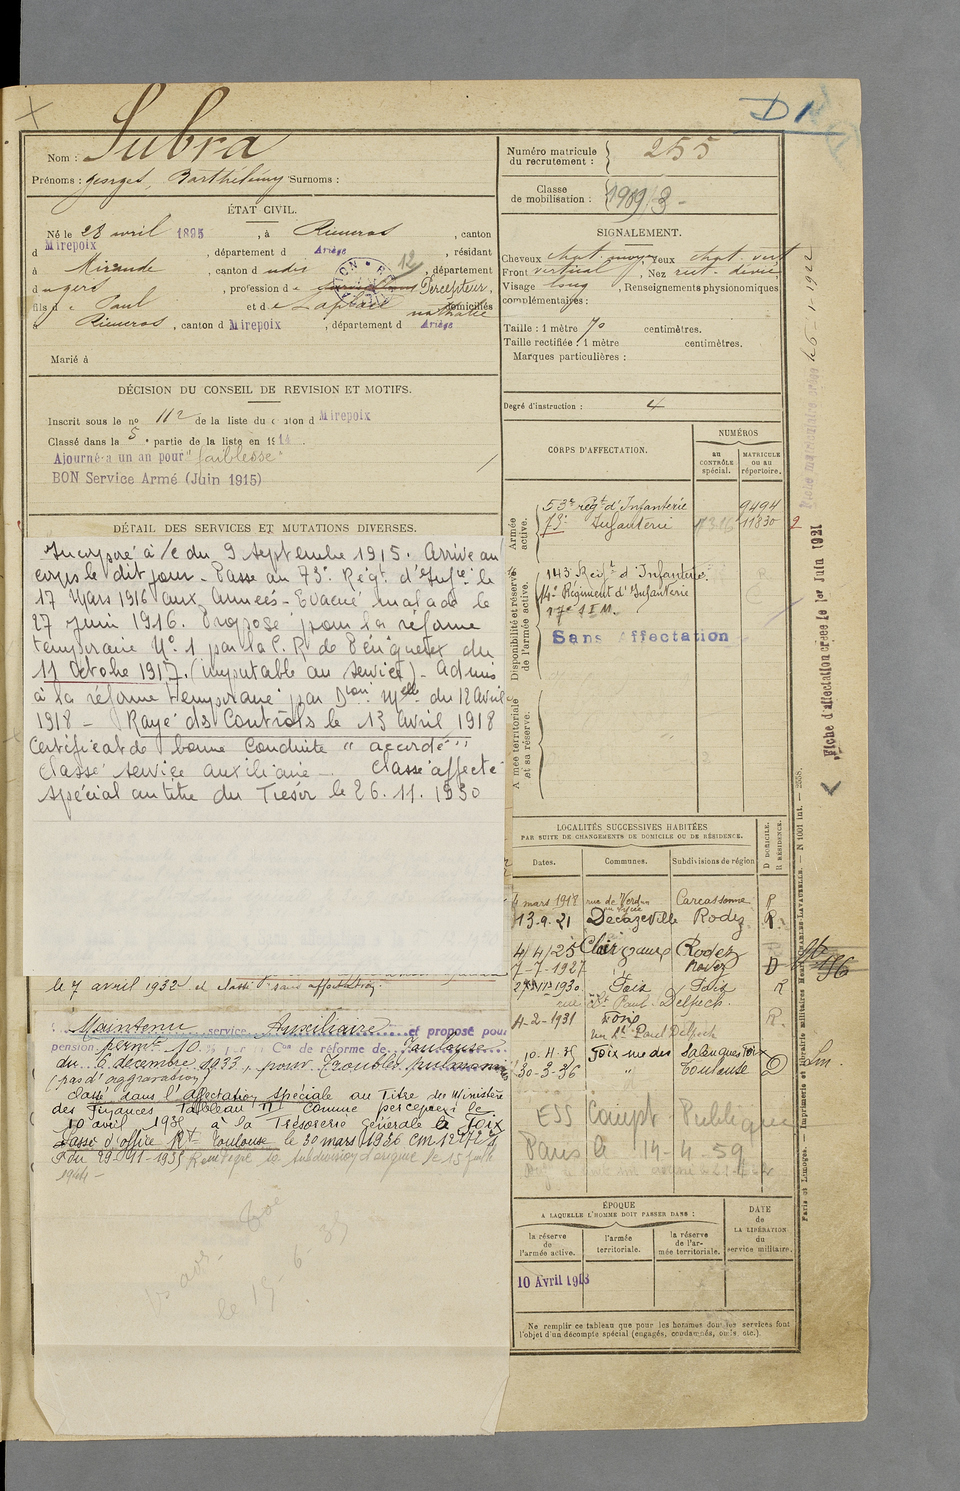 D 1
Nom : Subra
Prénoms : Georges, Barthélémy Surnoms :
Numéro matricule du recrutement : 255
Classe de mobilisation : 1909/3
ÉTAT CIVIL.
Né le 28 avril 1895, à Rieucros, canton
d Mirepoix, département d Ariège, résidant
à Mirande, canton d udit, département
du gers, profession d e Percepteur,
fils d e Paul et d e Raphaël nathalie domiciliés
à Rieucros, canton d Mirepoix, département d Ariège
Marié à
SIGNALEMENT.
Cheveux chat. yeux chat. vert
Front vertical, Nez rect. dévié
Visage long, Renseignements physionomiques
complémentaires :
Taille : 1 mètre 70 centimètres.
Taille rectifiée : 1 mètre centimètres.
Marques particulières :
Degré d'instruction : 4
DÉCISION DU CONSEIL DE REVISION ET MOTIFS.
Inscrit sous le no 112 de la liste du canton d Mirepoix
Classé dans la 5e partie de la liste en 1914.
Ajourné à un an pour "faiblesse"
BON Service Armé (Juin 1915)
DÉTAIL DES SERVICES ET MUTATIONS DIVERSES.
Incorporé à /c du 9 Septembre 1915. Arrivé au
corps le dit jour - Passé au 73e Régt d'Infie le
17 Mars 1916 aux Armées - Evacué malade le
27 Juin 1916. Proposé pour la réforme
temporaire No 1 par la C. R de Périgueux du
11 Octobre 1917. (imputable au service) - Admis
à la réforme temporaire par Don Melle du 12 Avril
1918 - Rayé ds Contrôls le 13 Avril 1918
Certificat de bonne Conduite " accordé "
Classé service auxiliaire - Classé affecté
spécial au titre du Trésor le 26.11.1930
le 7 avril 1932 et classé sans affectation.
Maintenu service Auxiliaire et proposé pour
pension permte 10 Con de réforme de Toulouse
du 6 décembre 1933, pour Troubles pulmonaires
(pas d'aggravation)
Classé dans l'affectation spéciale au Titre du Ministère
des Finances Tableau III comme percepteur le
10 avril 1935 à la Trésorerie Générale à Foix
Classé d'office Rt Toulouse le 30 mars 1936
CORPS D'AFFECTATION.
NUMÉROS
au CONTRÔLE spécial.
MATRICULE OU AU répertoire.
Armée active.
53e regt d'Infanterie 9494
73e Infanterie 11830
Disponibilité et réserve de l'armée active.
143 Regt d'Infanterie.
14e Régiment d'Infanterie
17e S I M.
Sans Affectation
Armée territoriale et sa réserve.
LOCALITÉS SUCCESSIVES HABITÉES
PAR SUITE DE CHANGEMENTS DE DOMICILE OU DE RÉSIDENCE.
Dates. Communes. Subdivisions de région D DOMICILE. R RÉSIDENCE.
4 mars 1918 rue de Verdun Carcassonne R
13.9.21 Decazeville Rodez R.
4/4/25 Rodez
7-7-1927 " Rodez D
1930 Foix Foix R
rue Lt Paul Delpech.
4-2-1931 Foix R.
rue Lt Paul Delpech
10.4.35 Foix rue des Salenques Foix
30-3-36 " Toulouse D
ESS Compt Publique
Paris le 14-4-59
ÉPOQUE
A LAQUELLE L'HOMME DOIT PASSER DANS :
la réserve de l'armée active.
l'armée territoriale.
la réserve de l'armée territoriale.
DATE de LA LIBÉRATION du service militaire.
10 Avril 1918
Ne remplir ce tableau que pour les hommes dont les services font
l'objet d'un décompte spécial (engagés, condamnés, omis, etc.)
Fiche d'affectation créée le 1er Juin 1921